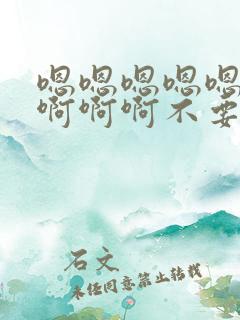 嗯嗯嗯嗯嗯
啊啊啊不要
石文
未经同意禁止转载